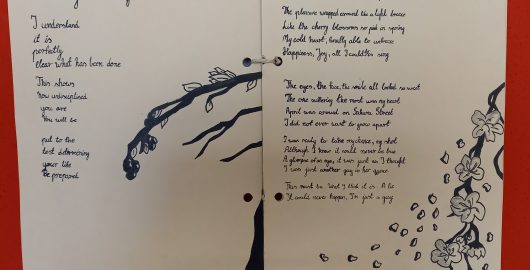 I understand
it is
perfectly
clear what has been done
This shows
how undisciplined
you are
You will be
put to the
test determining
your life
Be prepared
The pleasure wrapped around me a light breeze
Like the cherry blossoms so pink in spring
My cold heart, finally able to embrace
Happiness, Joy, all I could sing
The eyes, the face, the smile all looked so sweet
The one suffering the most was my heart
April was around on Sakura Street
I did not ever want to grow apart
I was ready to take my chance, my shot
Although I knew it could never be true
A glimpse of an eye, it was just as I thought
I was just another guy in her
This must be what I think it is. A lie
It could never happen, I'm just a guy